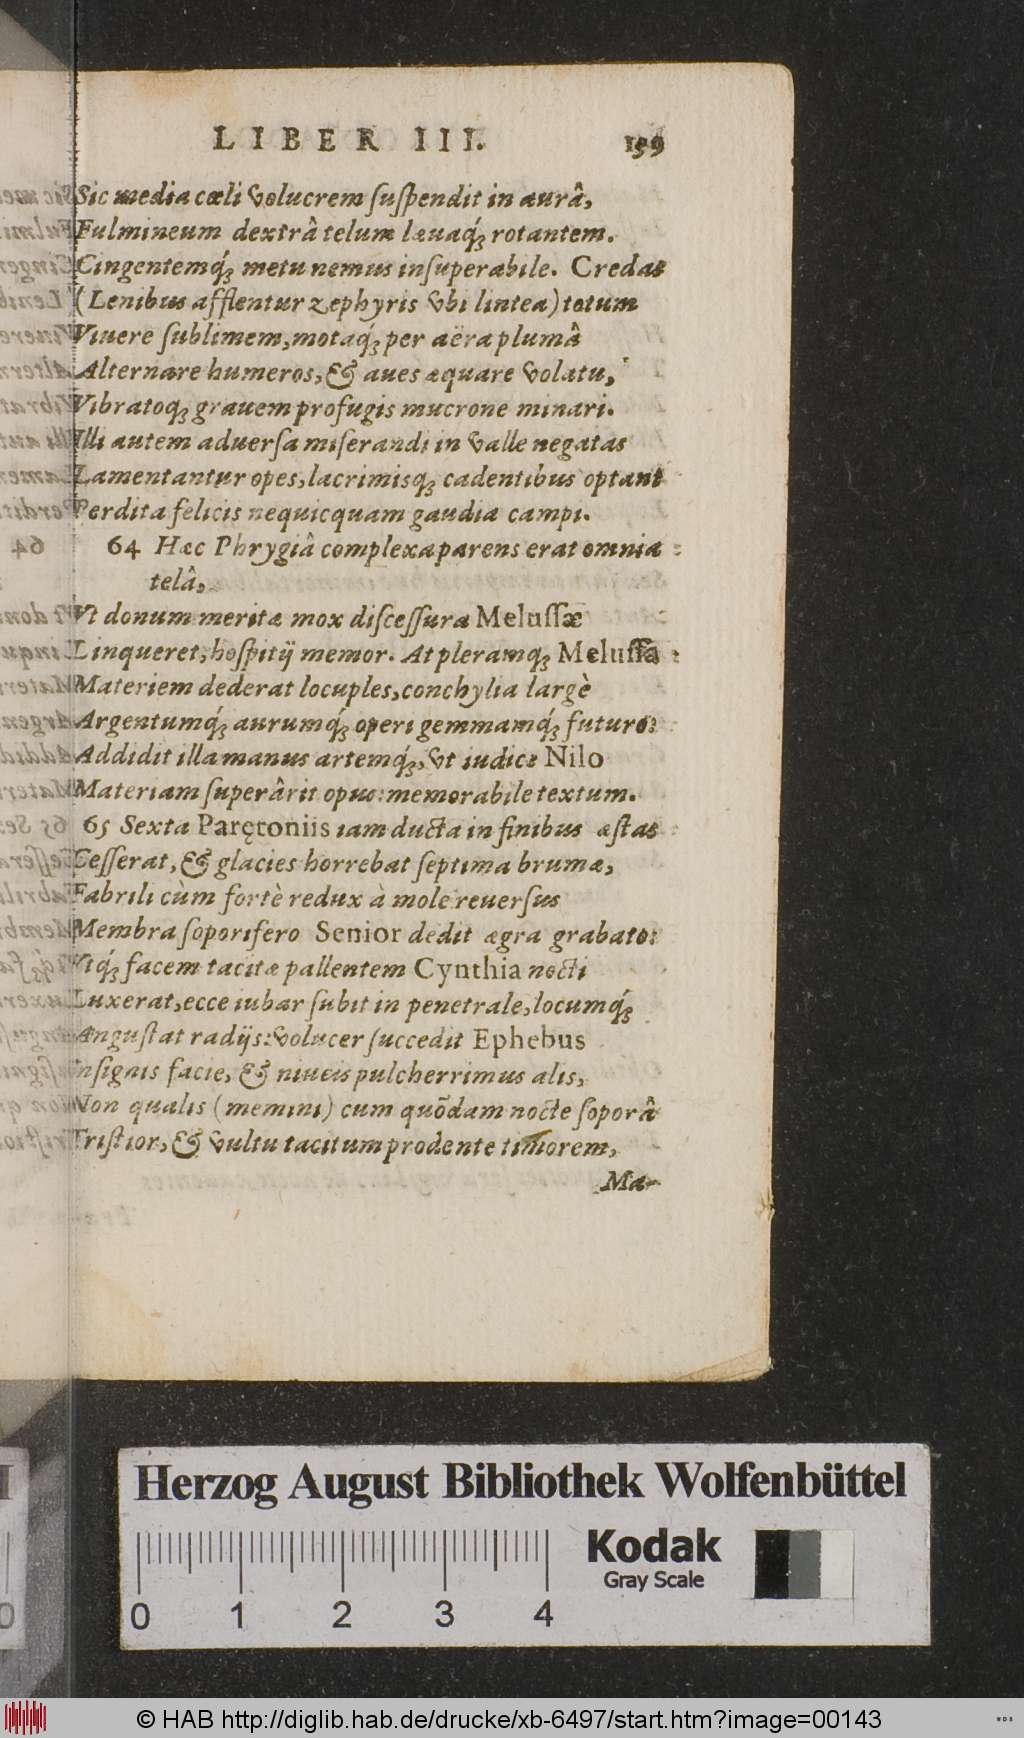 LIBER III. 139
Sic media cœli volucrem ſuſpendit in aurâ,
Fulmineum dextrâ telum læuaq́ꝫ rotantem.
Cingentemq́ꝫ metu nemus inſuperabile. Credas
(Lenibus afflentur zephyris vbi lintea) totum
Viuere ſublimem, motaq́ꝫ per aëra plumâ
Alternare humeros, & aues æquare volatu,
Vibratoqꝫ grauem profugis mucrone minari.
Illi autem aduerſa miſerandi in valle negatas
Lamentantur opes, lacrimisqꝫ cadentibus optant
Perdita felicis nequicquam gaudia campi.
64 Hæc Phrygiâ complexa parens erat omnia
telâ,
Vt donum meritæ mox diſceſſura Meluſſæ
Linqueret, hoſpitij memor. At pleramqꝫ Meluſſa
Materiem dederat locuples, conchylia largè
Argentumq́ꝫ aurumq́ꝫ operi gemmamq́ꝫ futuro:
Addidit illa manus artemq́ꝫ, vt iudice Nilo
Materiam ſuperârit opus: memorabile textum.
65 Sexta Paręroniis iam ducta in finibus æſtas
Ceſſerat, & glacies horrebat ſeptima brumæ,
Fabrili cùm fortè redux à mole reuerſus
Membra ſoporifero Senior dedit ægra grabato:
Vtq́ꝫ facem tacitæ pallentem Cynthia nocti
Luxerat, ecce iubar ſubit in penetrale, locumq́ꝫ
Anguſtat radijs: volucer ſuccedit Ephebus
Inſignis facie, & niueis pulcherrimus alis,
Non qualis (memini) cum quõdam nocte ſoporâ
Triſtior, & vultu tacitum prodente timorem,
Ma-
Herzog August Bibliothek Wolfenbüttel
Kodak
Gray Scale
0 1 2 3 4
© HAB http://diglib.hab.de/drucke/xb-6497/start.htm?image=00143